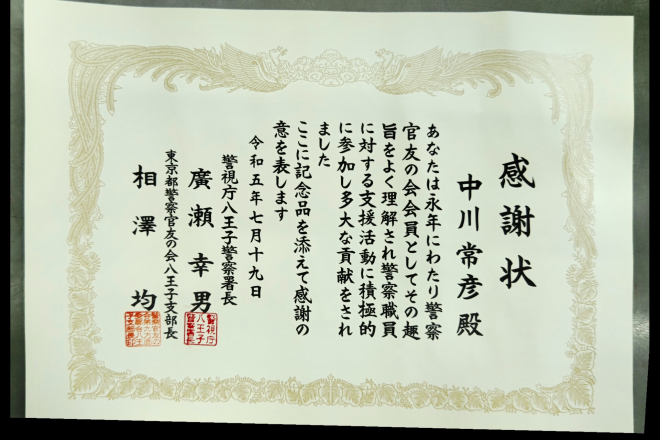 感謝状
中川常彦殿
あなたは永年にわたり警察
官友の会会員としてその趣
旨をよく理解され警察職員
に対する支援活動に積極的
に参加し多大な貢献をされ
ました
ここに記念品を添えて感謝の
意を表します
令和五年七月十九日
警視庁八王子警察署長
廣瀬幸男
警視庁
八王子
警察署長
東京都警察官友の会八王子支部長
相澤均